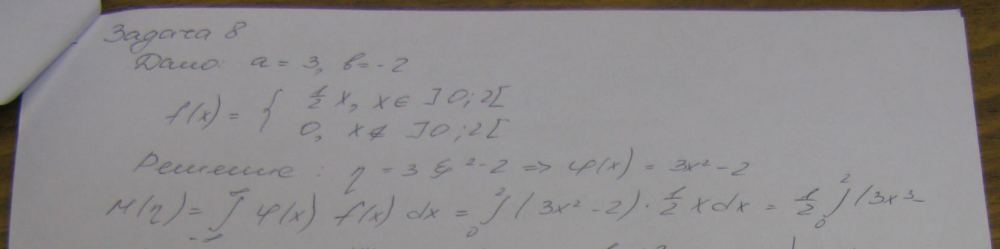 Задача 8
Дано: a = 3, b = -2
f(x) = { ½ x, x ∈ ]0;2[
0, x ∉ ]0;2[
Решение: η = 3ξ² - 2 ⇒ φ(x) = 3x² - 2
M(η) = ∫_{-∞}^{∞} φ(x) f(x) dx = ∫_0^2 (3x² - 2) · ½ x dx = ½ ∫_0^2 (3x³ -